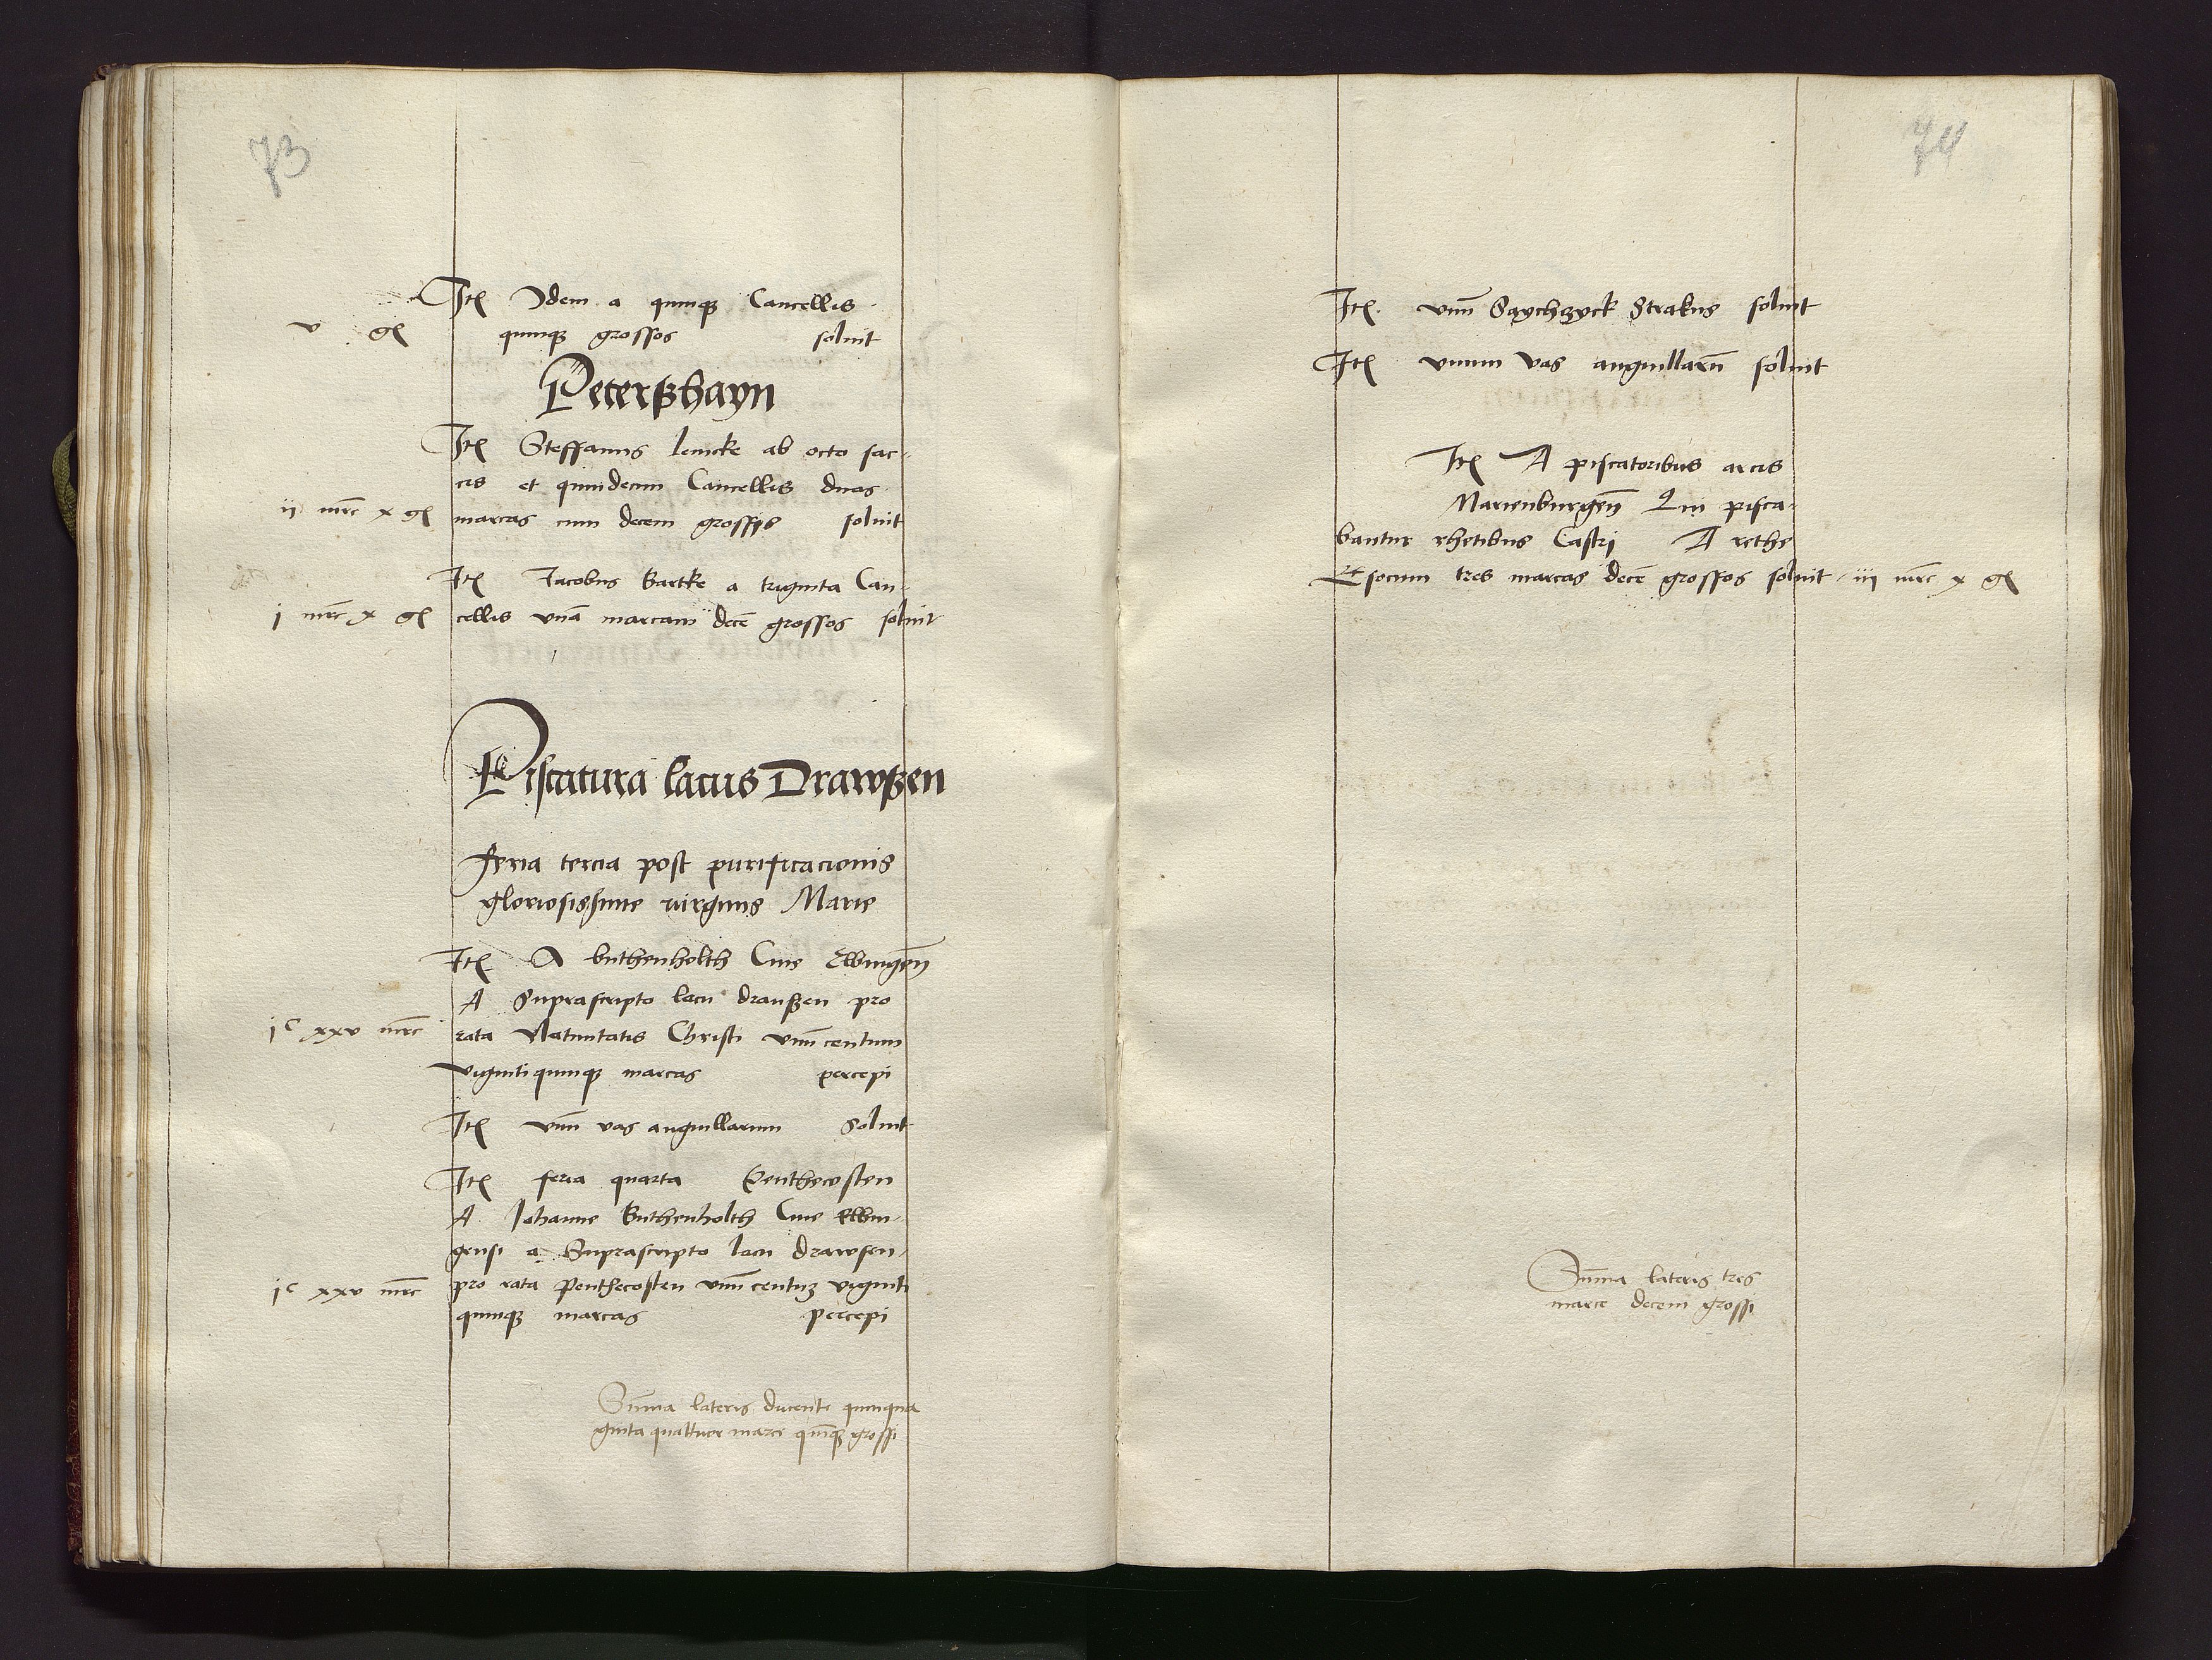 73
Itꝭ Idem a quinqꝫ Cancellis
v gꝭ quinqꝫ grossos soluit
Peterßhayn
Itꝭ Steffanus lemcke ab octo sac-
cis et quindecim Cancellis duas
ii mrc x gꝭ marcas cum decem grossis soluit
Itꝭ Jacobus Bartke a triginta Can-
i mrc x gꝭ cellis vnā marcam decē grossos soluit
Piscatura lacus Drawßen
feria tercia post purificacionis
gloriosissime uirginis Marie
Itꝭ A buthenholth Ciue Elwingen̄
A Suprascripto lacu draußen pro
iᶜ xxv mrc rata Natiuitatis Christi vnū centum
viginti quinqꝫ marcas percepi
Itꝭ vnū vas anguillarum Soluit
Itꝭ feria quarta Penthecosten
A Johanne Buthenholth Ciue Elbin-
gensi a Suprascripto lacu drawsen
iᶜ xxv mrc pro rata Penthecosten vnū centuꝫ viginti
quinqꝫ marcas percepi
Sūma lateris ducenti quinqua
ginta quattuor marce quīqꝫ grossi
74
Itꝭ vnū Saychzyck Strakus soluit
Itꝭ vnum vas anguillarū soluit
Itꝭ A piscatoribus arcis
Marienburgen̄ Qui pisca-
bantur rhetibus Castri A rethe
Esocum tres marcas decē grossos soluit iii mrc x gꝭ
Sūma lateris tres
marce decem grossi